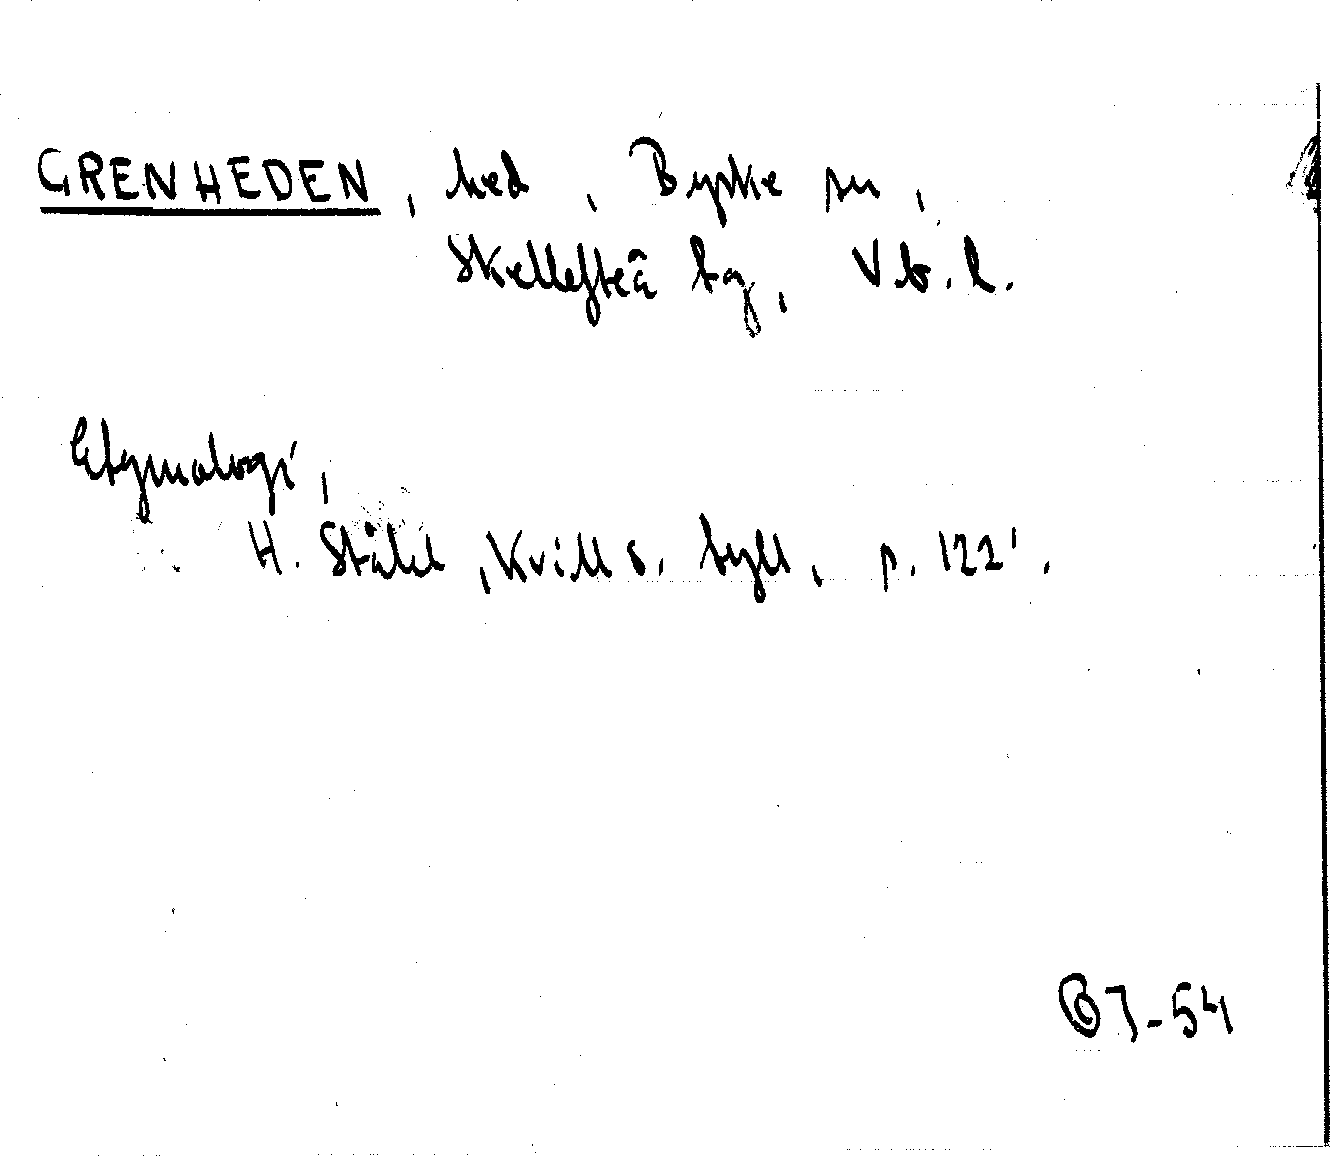 GRENHEDEN, hed, Byske sn,
Skellefteå tg, Vb.l.
Etymologi,
H. Ståhl, Kvill o. tyll, p. 122'.